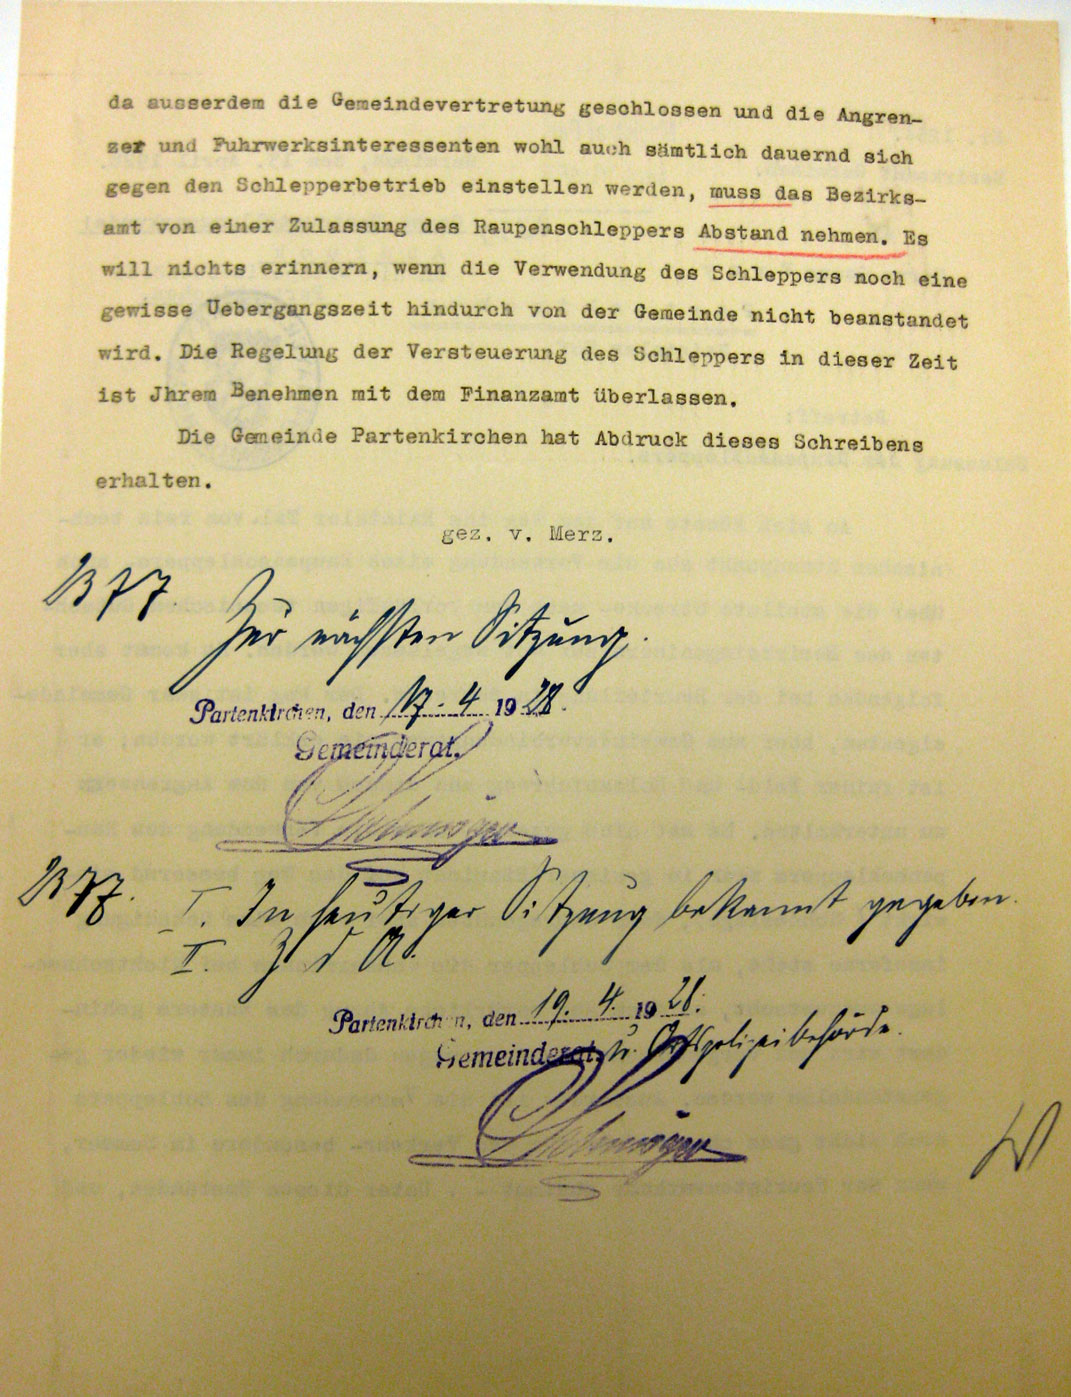 da ausserdem die Gemeindevertretung geschlossen und die Angren-
zer und Fuhrwerksinteressenten wohl auch sämtlich dauernd sich
gegen den Schlepperbetrieb einstellen werden, muss das Bezirks-
amt von einer Zulassung des Raupenschleppers Abstand nehmen. Es
will nichts erinnern, wenn die Verwendung des Schleppers noch eine
gewisse Uebergangszeit hindurch von der Gemeinde nicht beanstandet
wird. Die Regelung der Versteuerung des Schleppers in dieser Zeit
ist Jhrem Benehmen mit dem Finanzamt überlassen.
Die Gemeinde Partenkirchen hat Abdruck dieses Schreibens
erhalten.
gez. v. Merz.
Zur nächsten Sitzung.
Partenkirchen, den 17. 4 1928.
Gemeinderat.
I. In heutiger Sitzung bekannt gegeben.
II. Z d A.
Partenkirchen, den 19. 4. 1928.
Gemeinderat u. Ortspolizeibehörde.